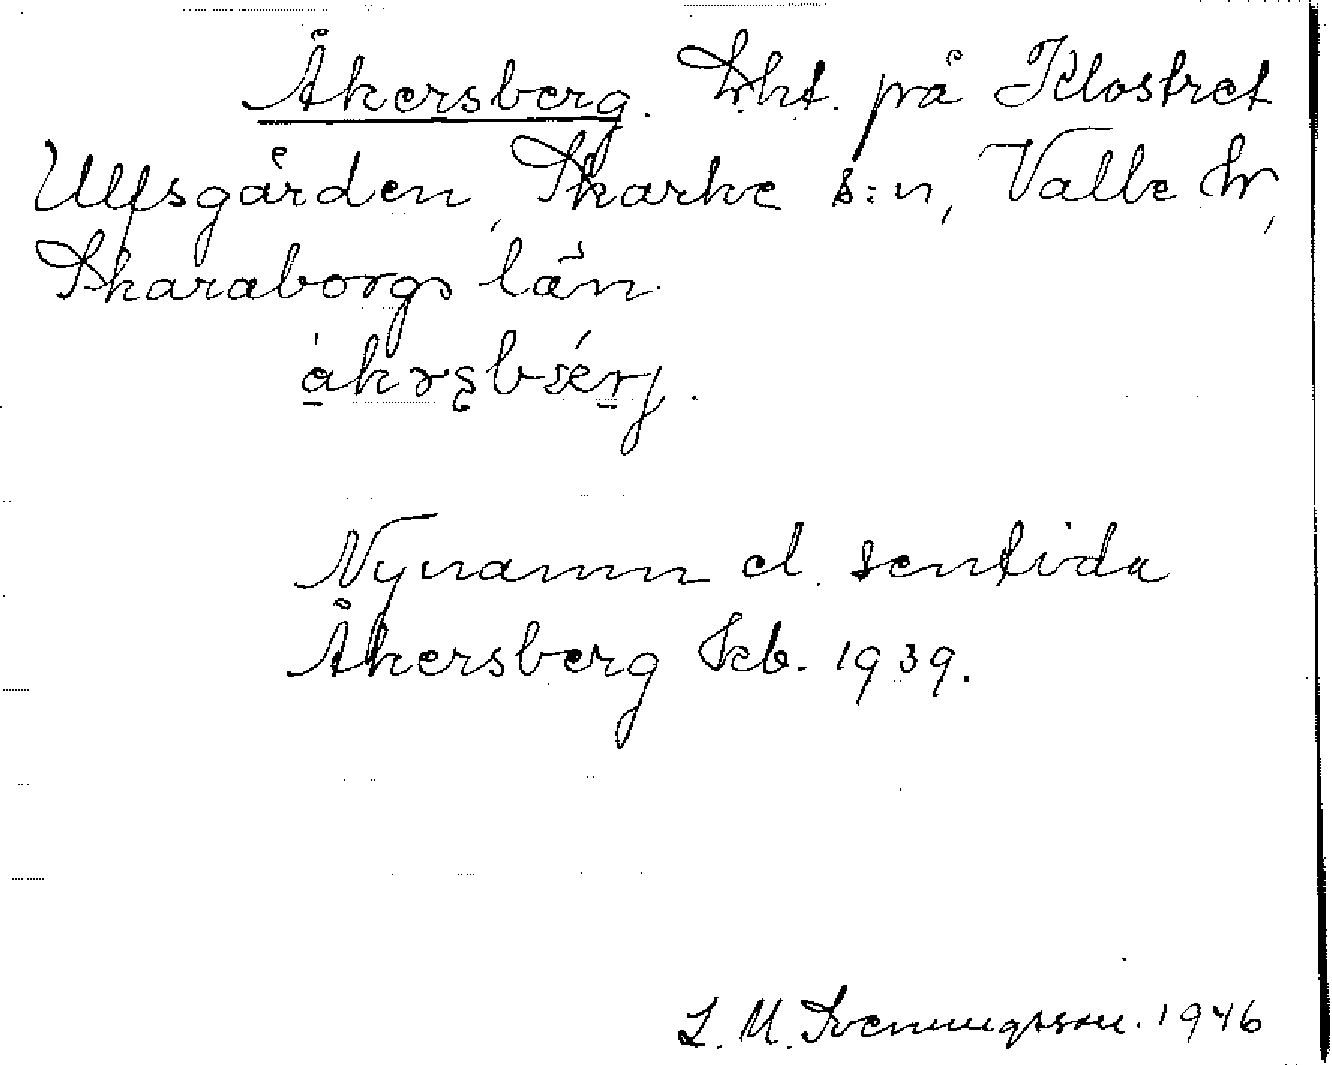 Åkersberg. Lht. på Klostret
Ulfsgården, Skarke s:n, Valle hr,
Skaraborgs län.
Nynamn el. sentida
Åkersberg Jkb. 1939.
L. M. Svenungsson. 1946